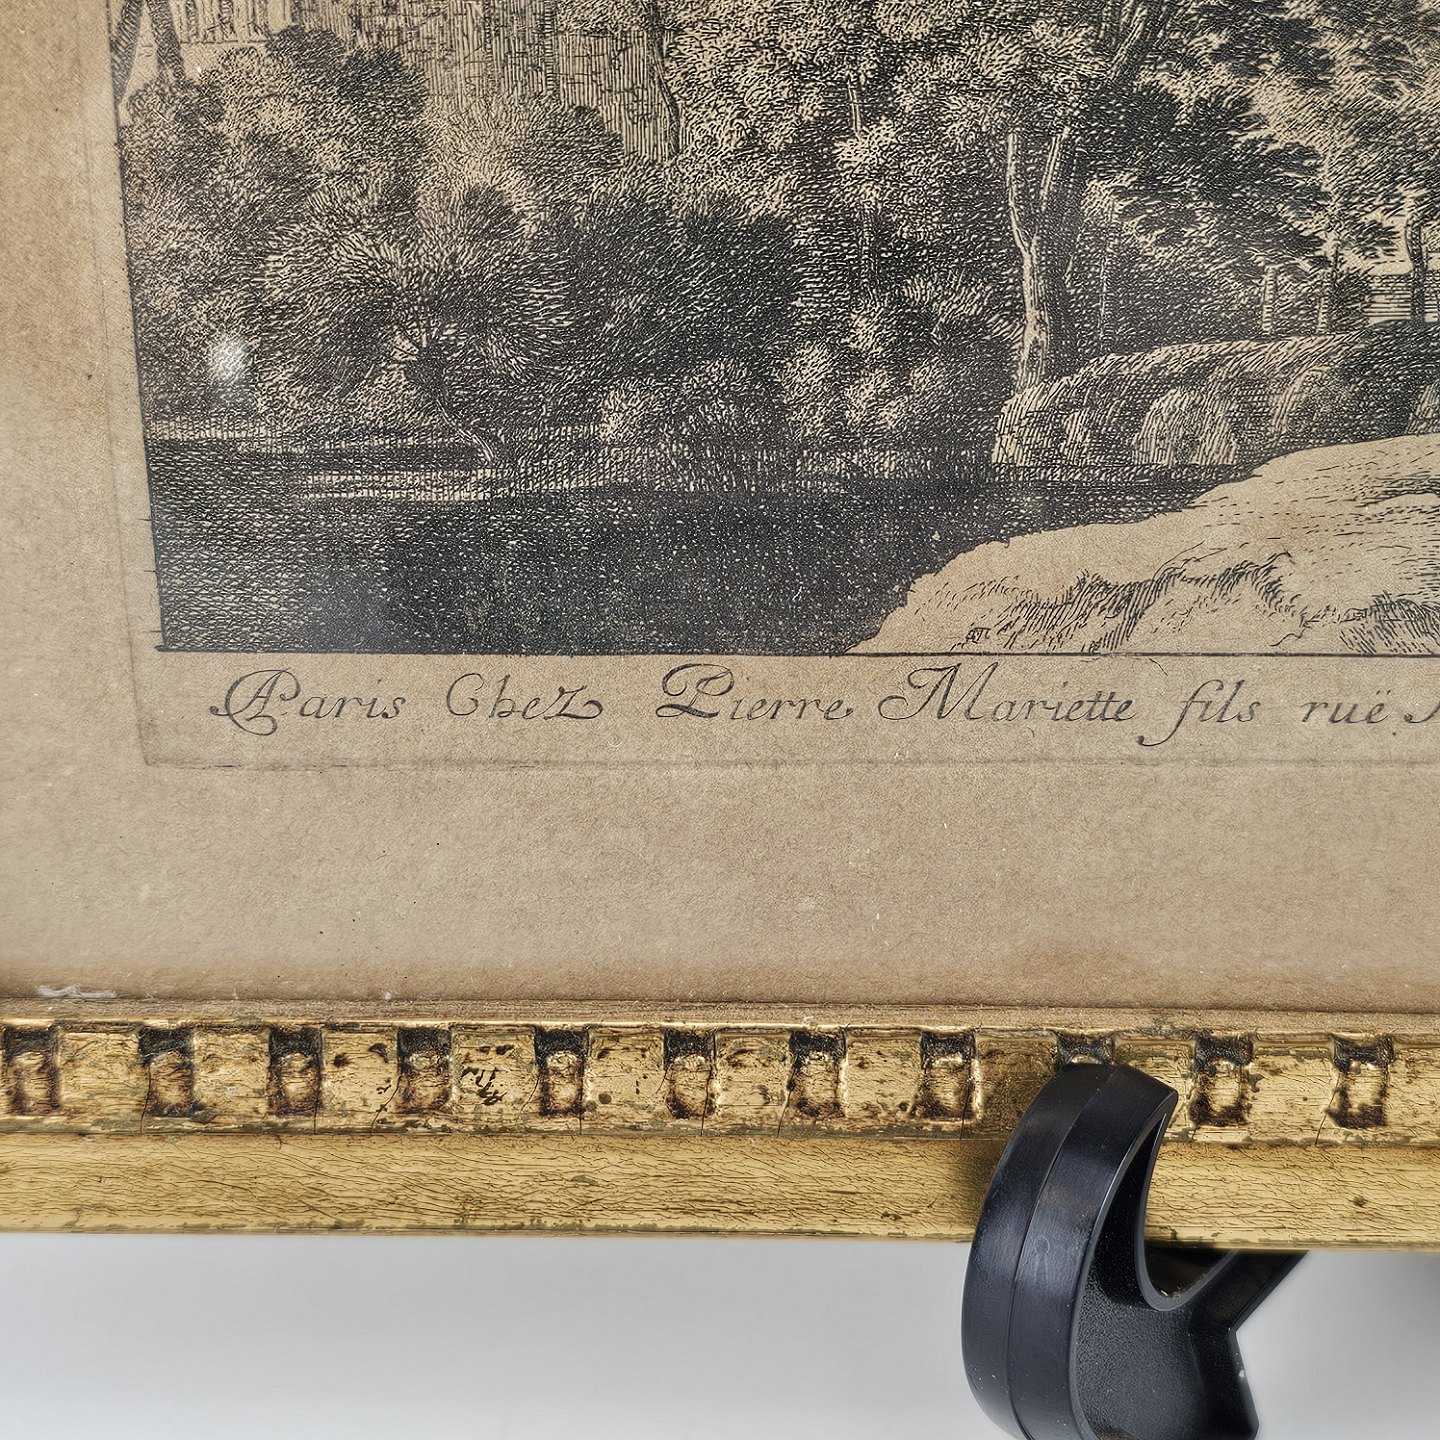 AParis Chez Pierre Mariette fils ruë